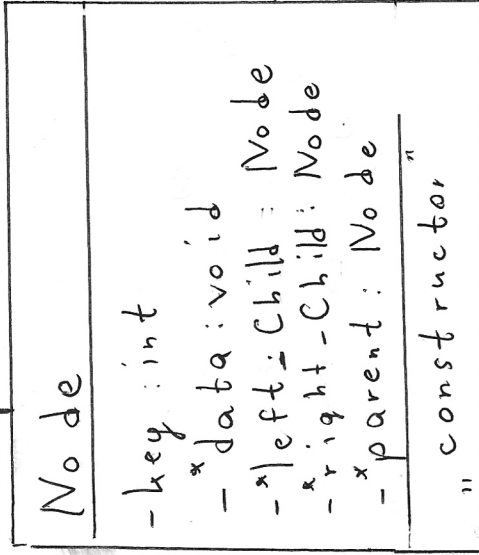 Node
- key : int
- *data : void
- *left-Child : Node
- *right-Child : Node
- *parent : Node
" constructor "